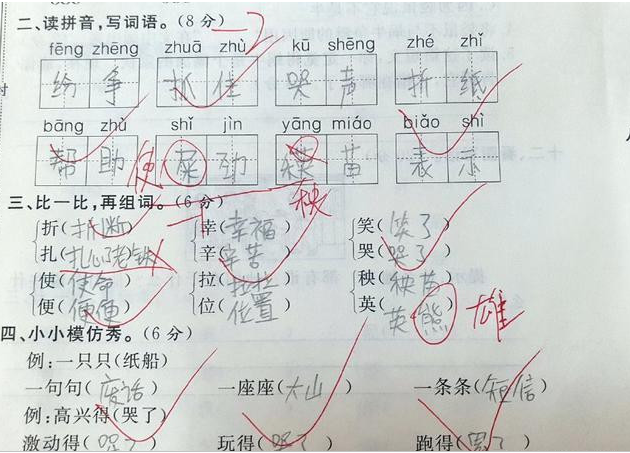 二、读拼音,写词语。(8分) -2
fēng zhēng zhuā zhù kū shēng zhé zhǐ
纷争 抓住 哭声 折纸
bāng zhù shǐ jìn yāng miáo biǎo shì
帮助 屎劲 苗 表示
使 秧
三、比一比,再组词。(6分) -1
折(折断) 幸(幸福) 笑(笑了)
扎(扎心了老铁) 辛(辛苦) 哭(哭了)
使(使命) 拉(拉拉) 秧(秧苗)
便(便便) 位(位置) 英(英熊) 雄
四、小小模仿秀。(6分)
例:一只只(纸船)
一句句(废话) 一座座(大山) 一条条(短信)
例:高兴得(哭了)
激动得(哭了) 玩得(哭了) 跑得(累了)